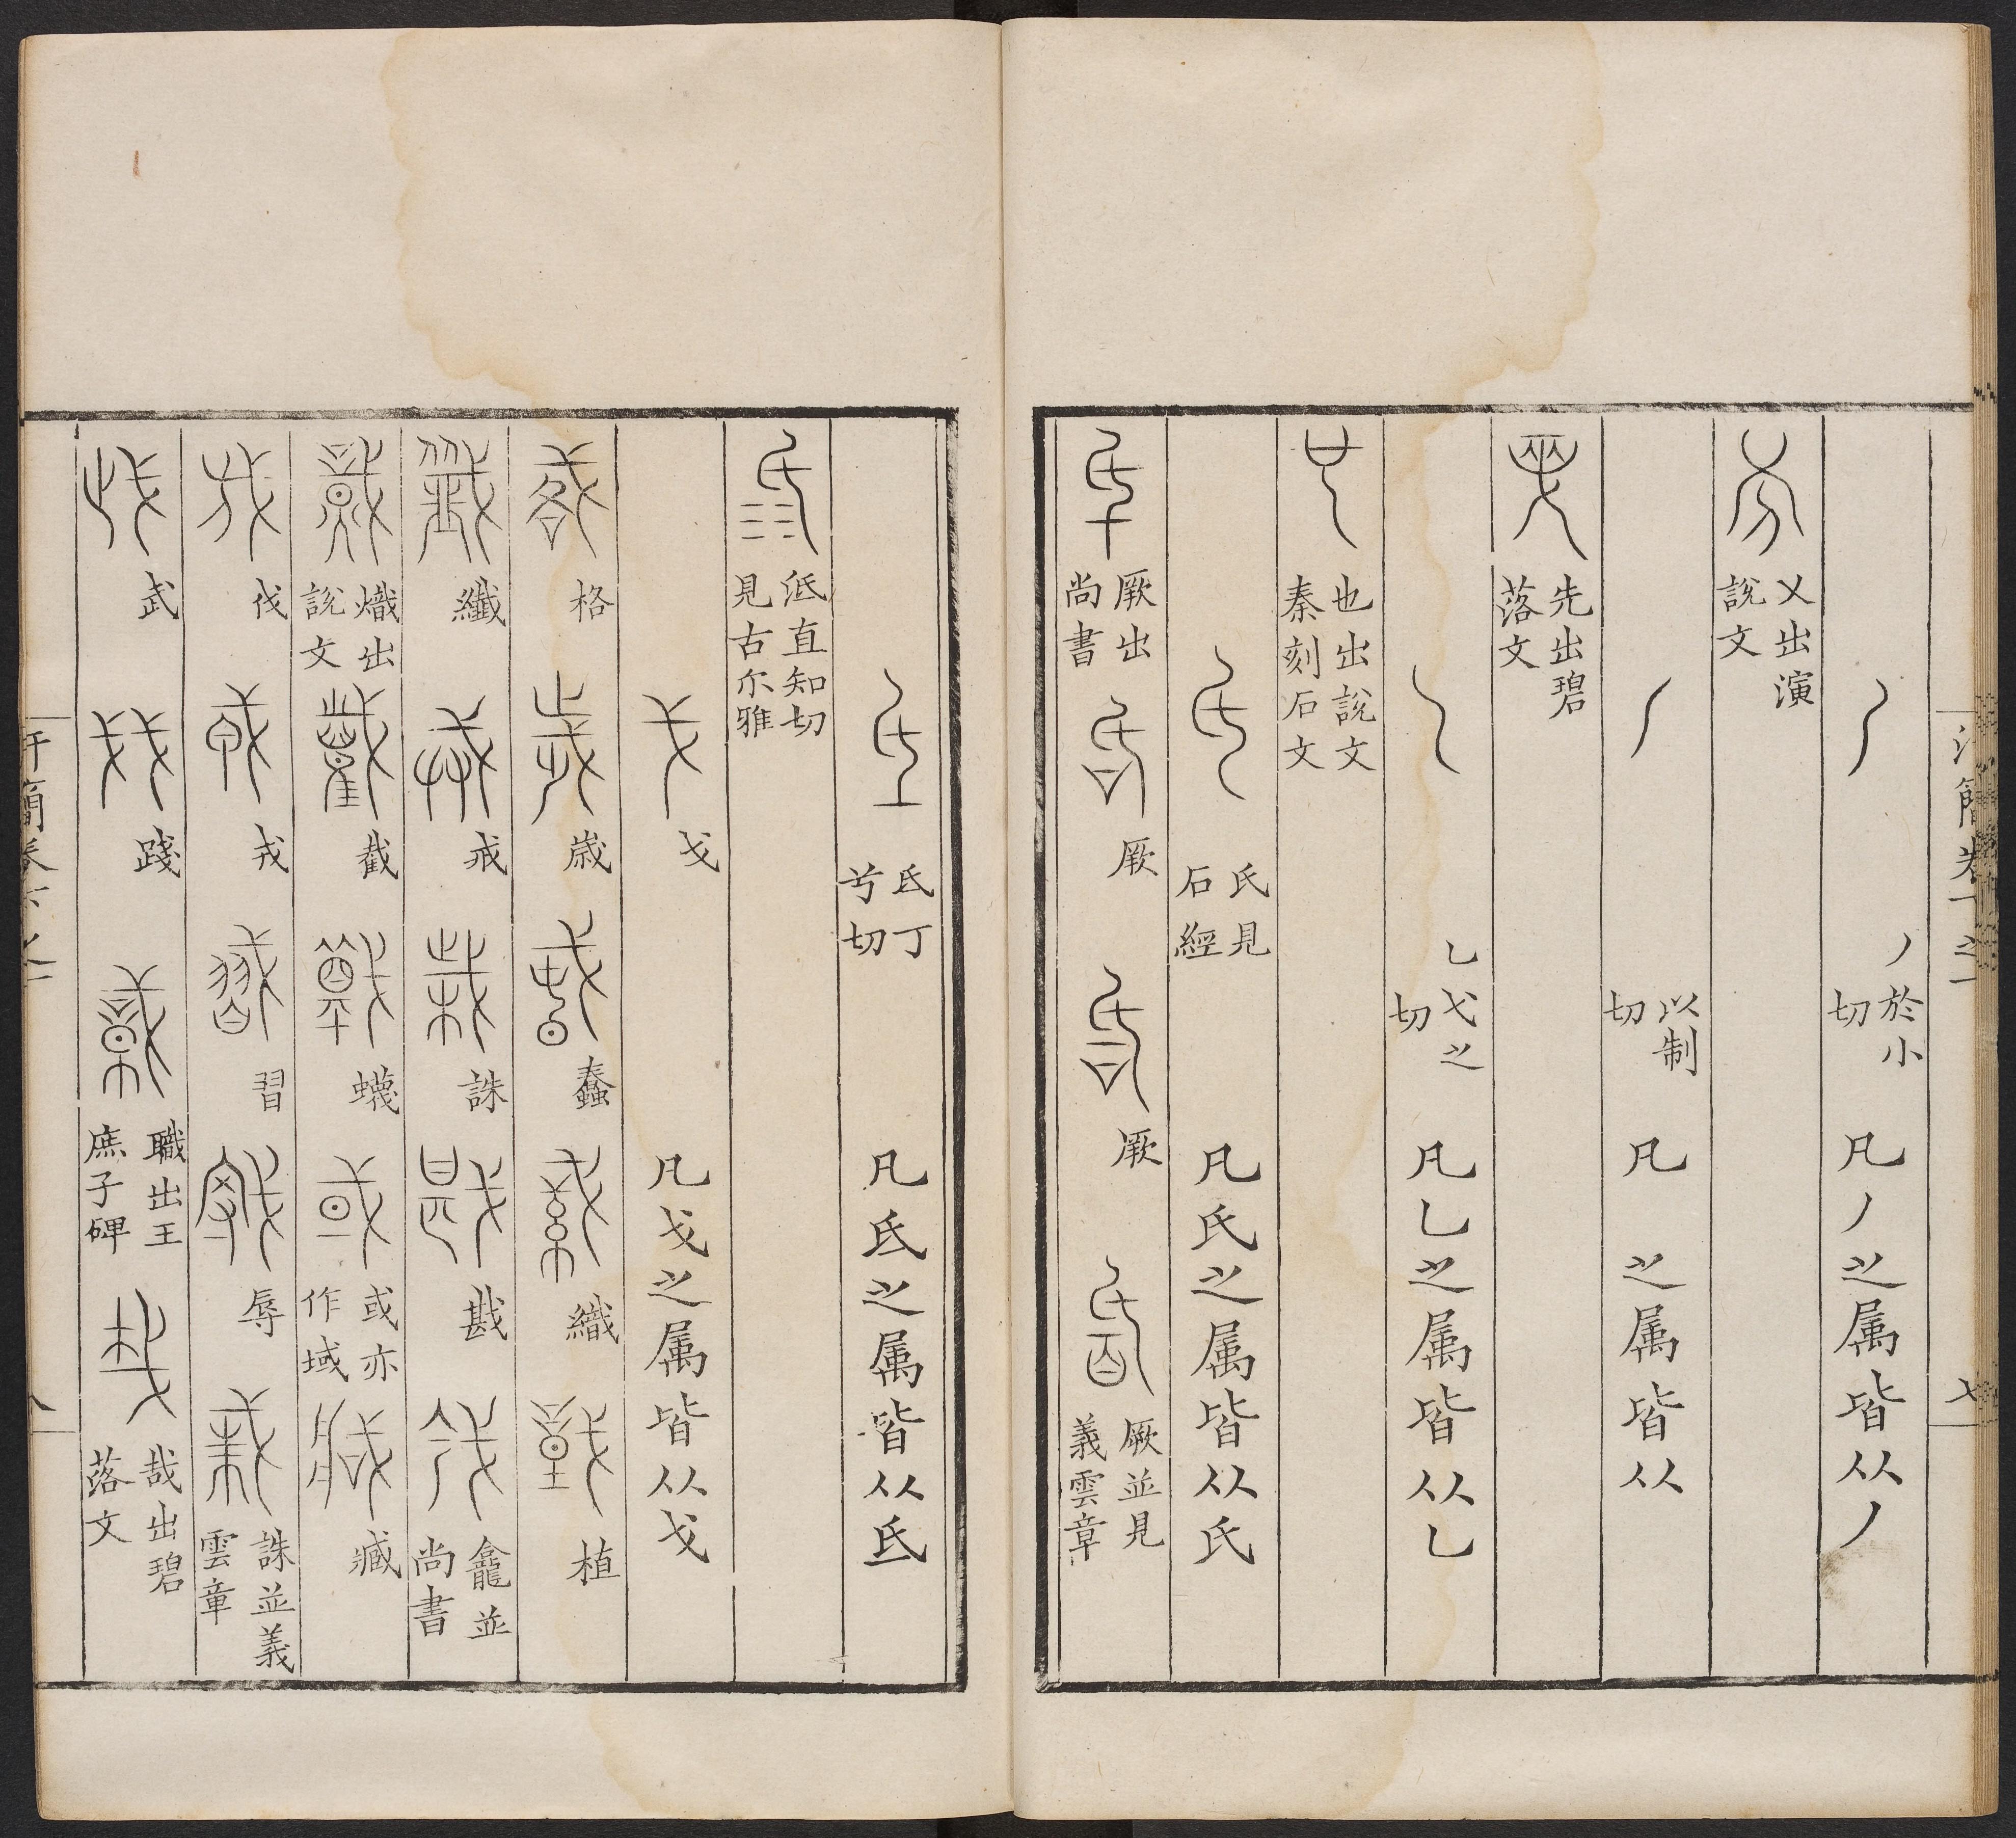 丿於小切 凡丿之属皆从丿
乂出演說文
以制切 凡 之属皆从
先出碧落文
乚弋之切 凡乚之属皆从乚
也出說文秦刻石文
氏見石經 凡氏之属皆从氏
厥出尚書 厥 厥 厥並見義雲章
氐丁兮切 凡氐之属皆从氐
泜直知切見古尓雅
戈 凡戈之属皆从戈
格 歲 蠢 織 植
纖 戒 誅 戡 龕並尚書
熾出說文 截 蠛 或亦作域 臧
伐 戎 習 辱 誅並義雲章
武 踐 職出王庶子碑 哉出碧落文